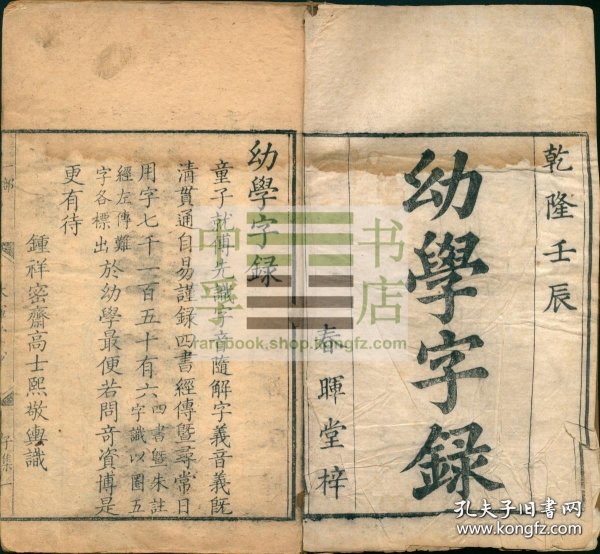 乾隆壬辰
幼學字録
春暉堂梓
幼學字録
童子就傅先識字音隨解字義音義旣
清貫通自易謹録四書經傳暨尋常日
用字七千一百五十有六四書暨朱註
字識以圈五
經左傳難
字各標出於幼學最便若問奇資博是
更有待
鍾祥密齋高士熙敬輿識
子集
中孚书店
rarebook.shop.kongfz.com
孔夫子旧书网
www.kongfz.com